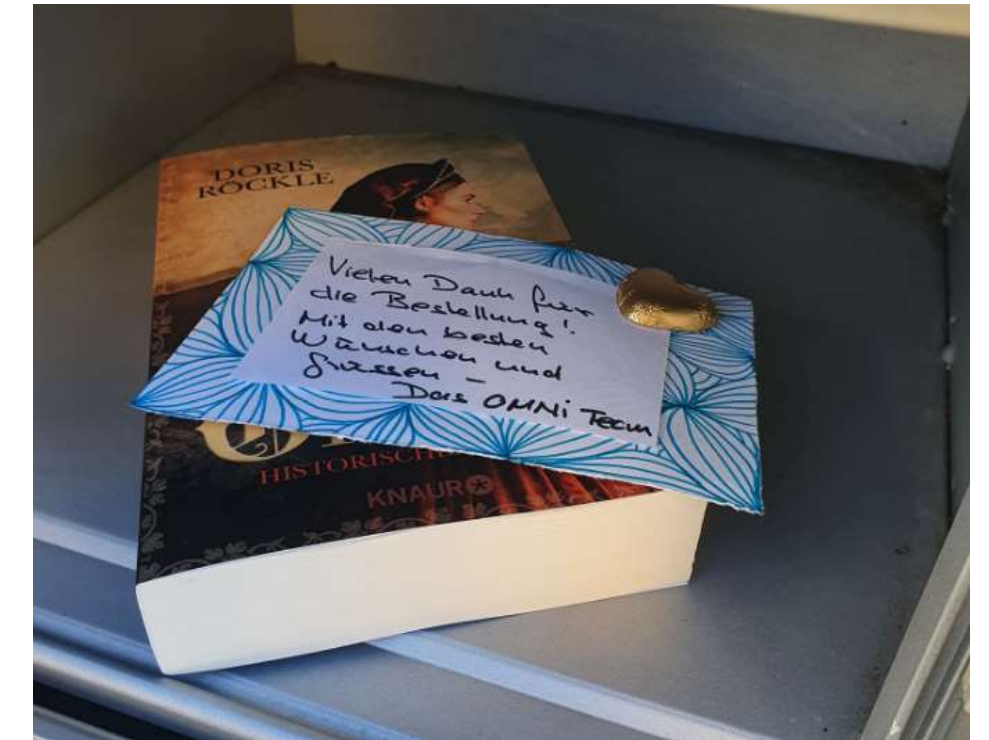 DORIS
RÖCKLE
Vielen Dank für
die Bestellung!
Mit den besten
Wünschen und
Grüssen –
Das OMNi Team
KNAUR